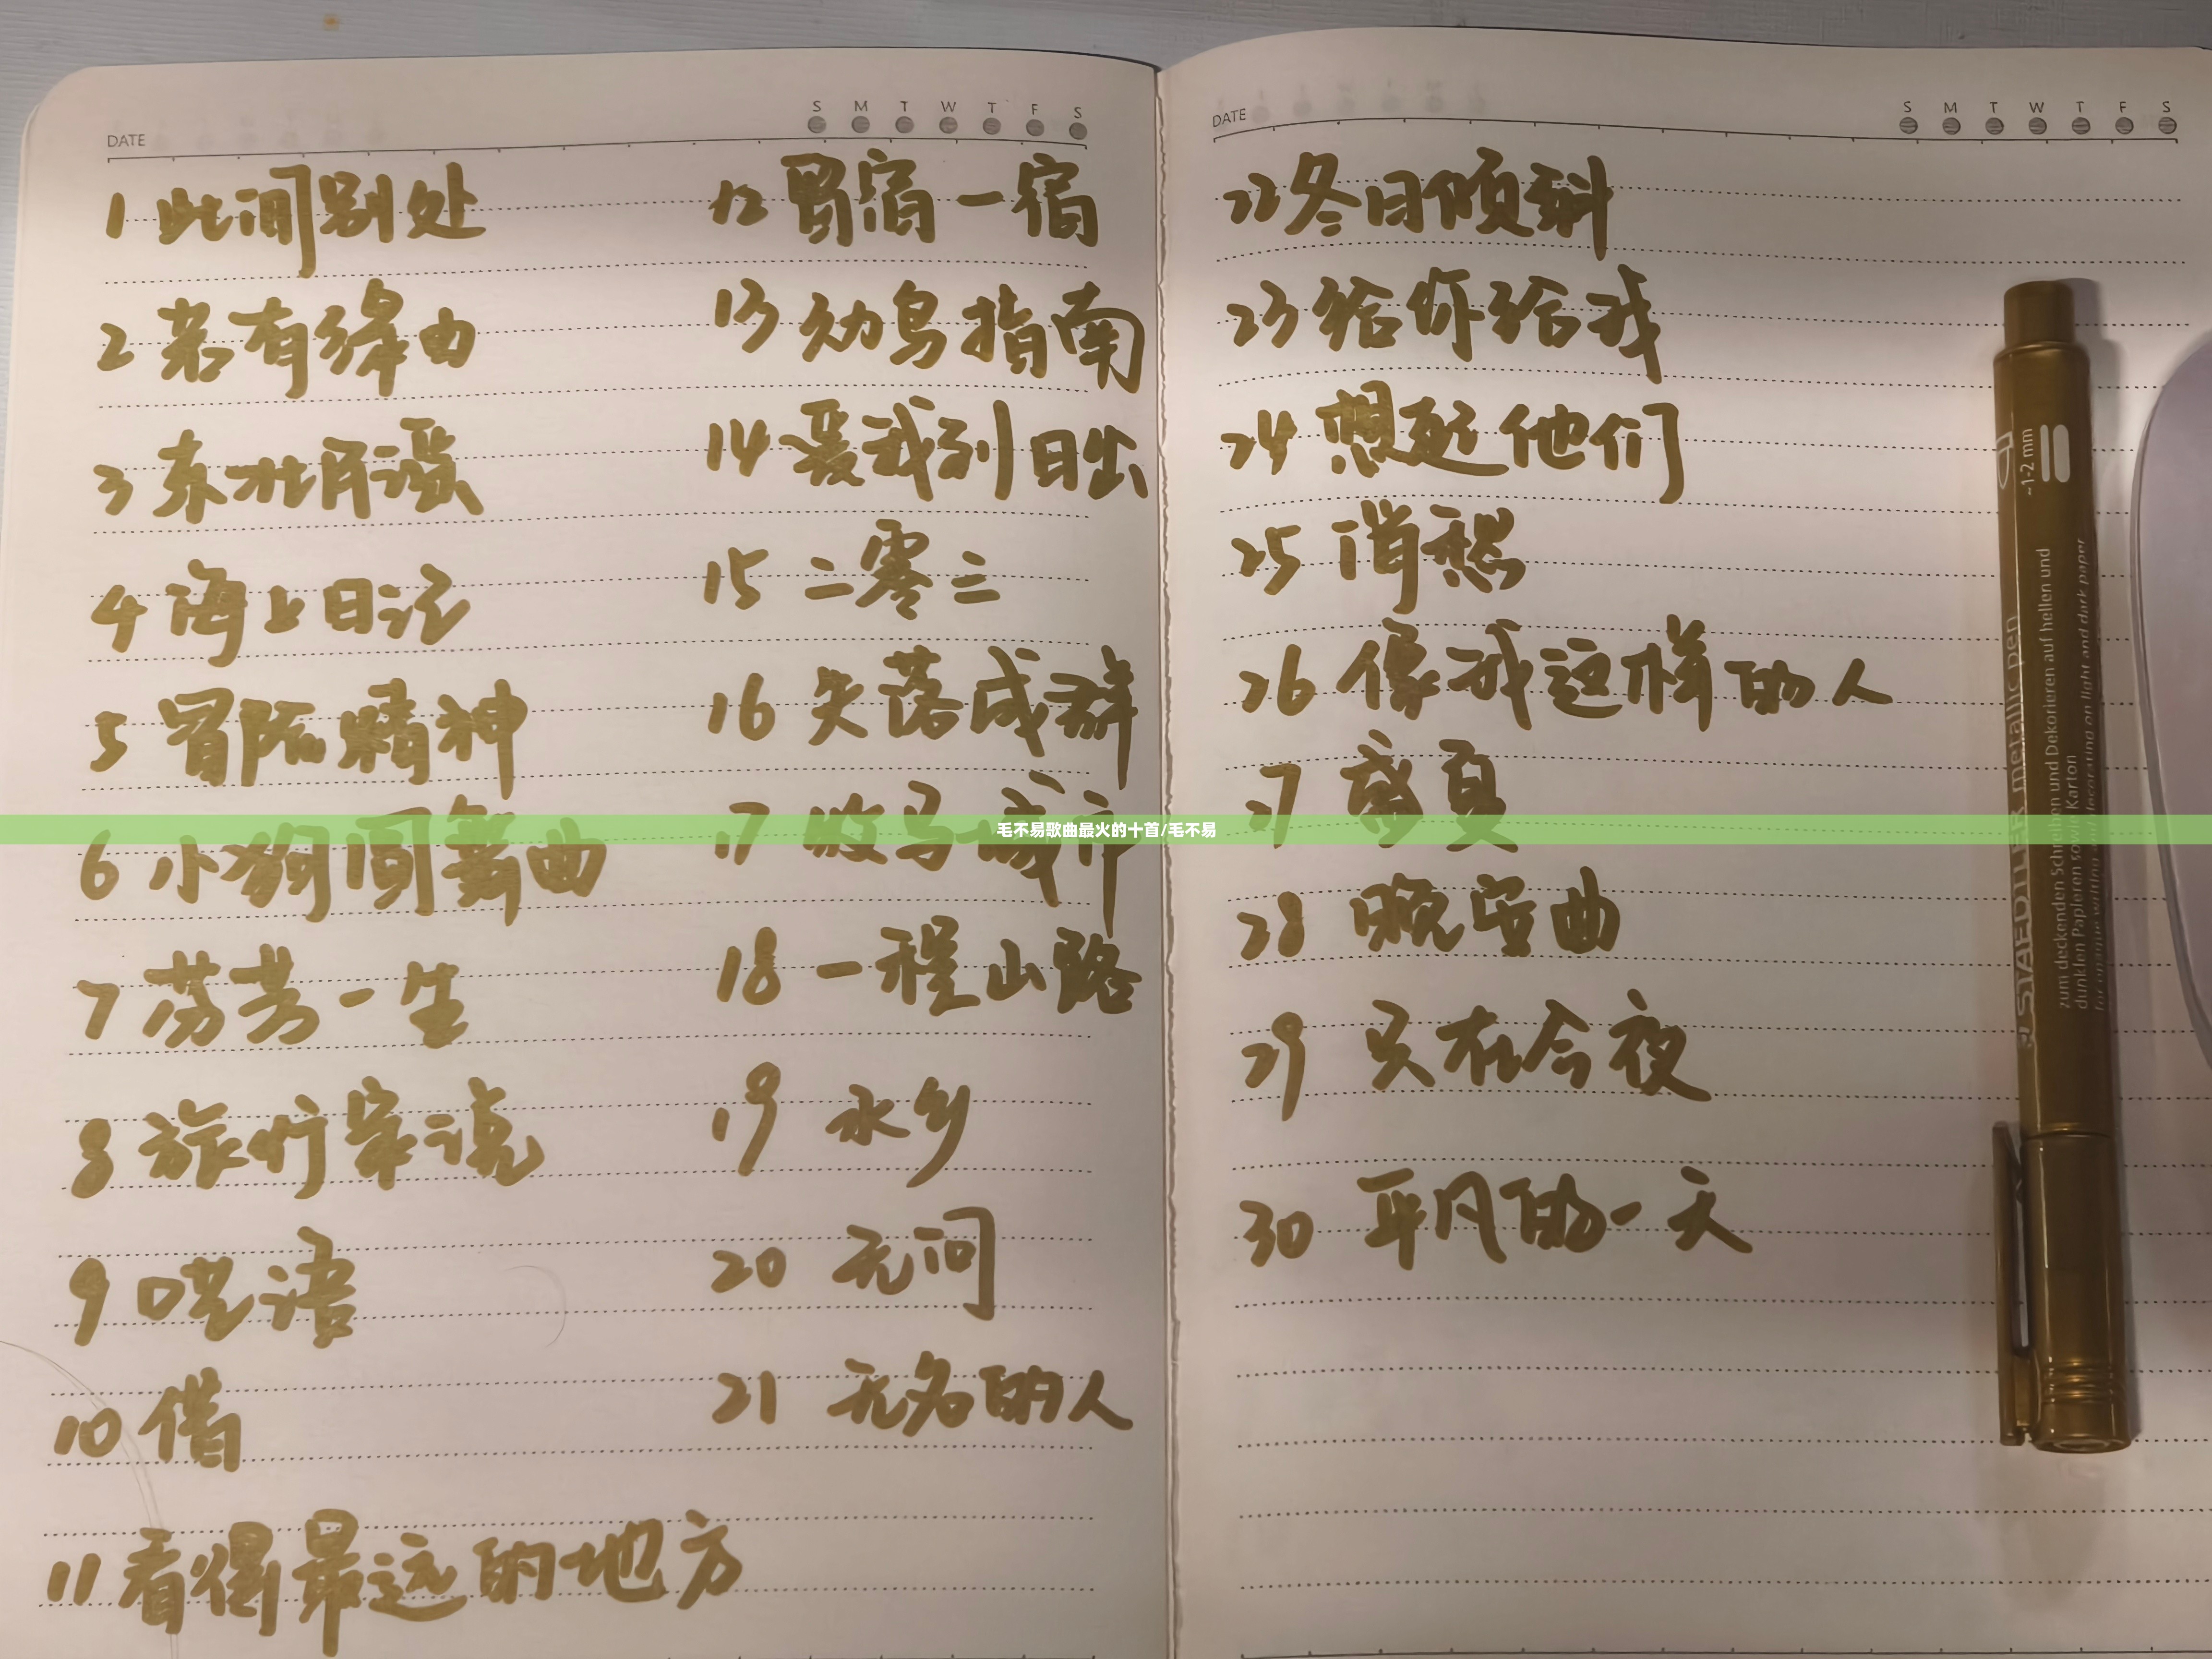 DATE
S M T W T F S
1 此间别处
2 若有缘由
3 东北民谣
4 海上日记
5 冒险精神
6 小狗圆舞曲
7 芬芳一生
8 旅行家说
9 呓语
10 借
11 看得最远的地方
12 胃宿一宿
13 幼鸟指南
14 最我到日出
15 二零三
16 失落成群
17 牧马城市
18 一程山路
19 水乡
20 无问
21 无名的人
DATE
S M T W T F S
22 冬日倾斜
23 给你给我
24 想起他们
25 消愁
26 像我这样的人
27 盛夏
28 晚安曲
29 只在今夜
30 平凡的一天
毛不易歌曲最火的十首/毛不易
~1-2 mm
STAEDTLER metallic pen
zum deckenden Schreiben und Dekorieren auf hellen und
dunklen Papieren sowie Karton
for opaque writing and decorating on light and dark paper